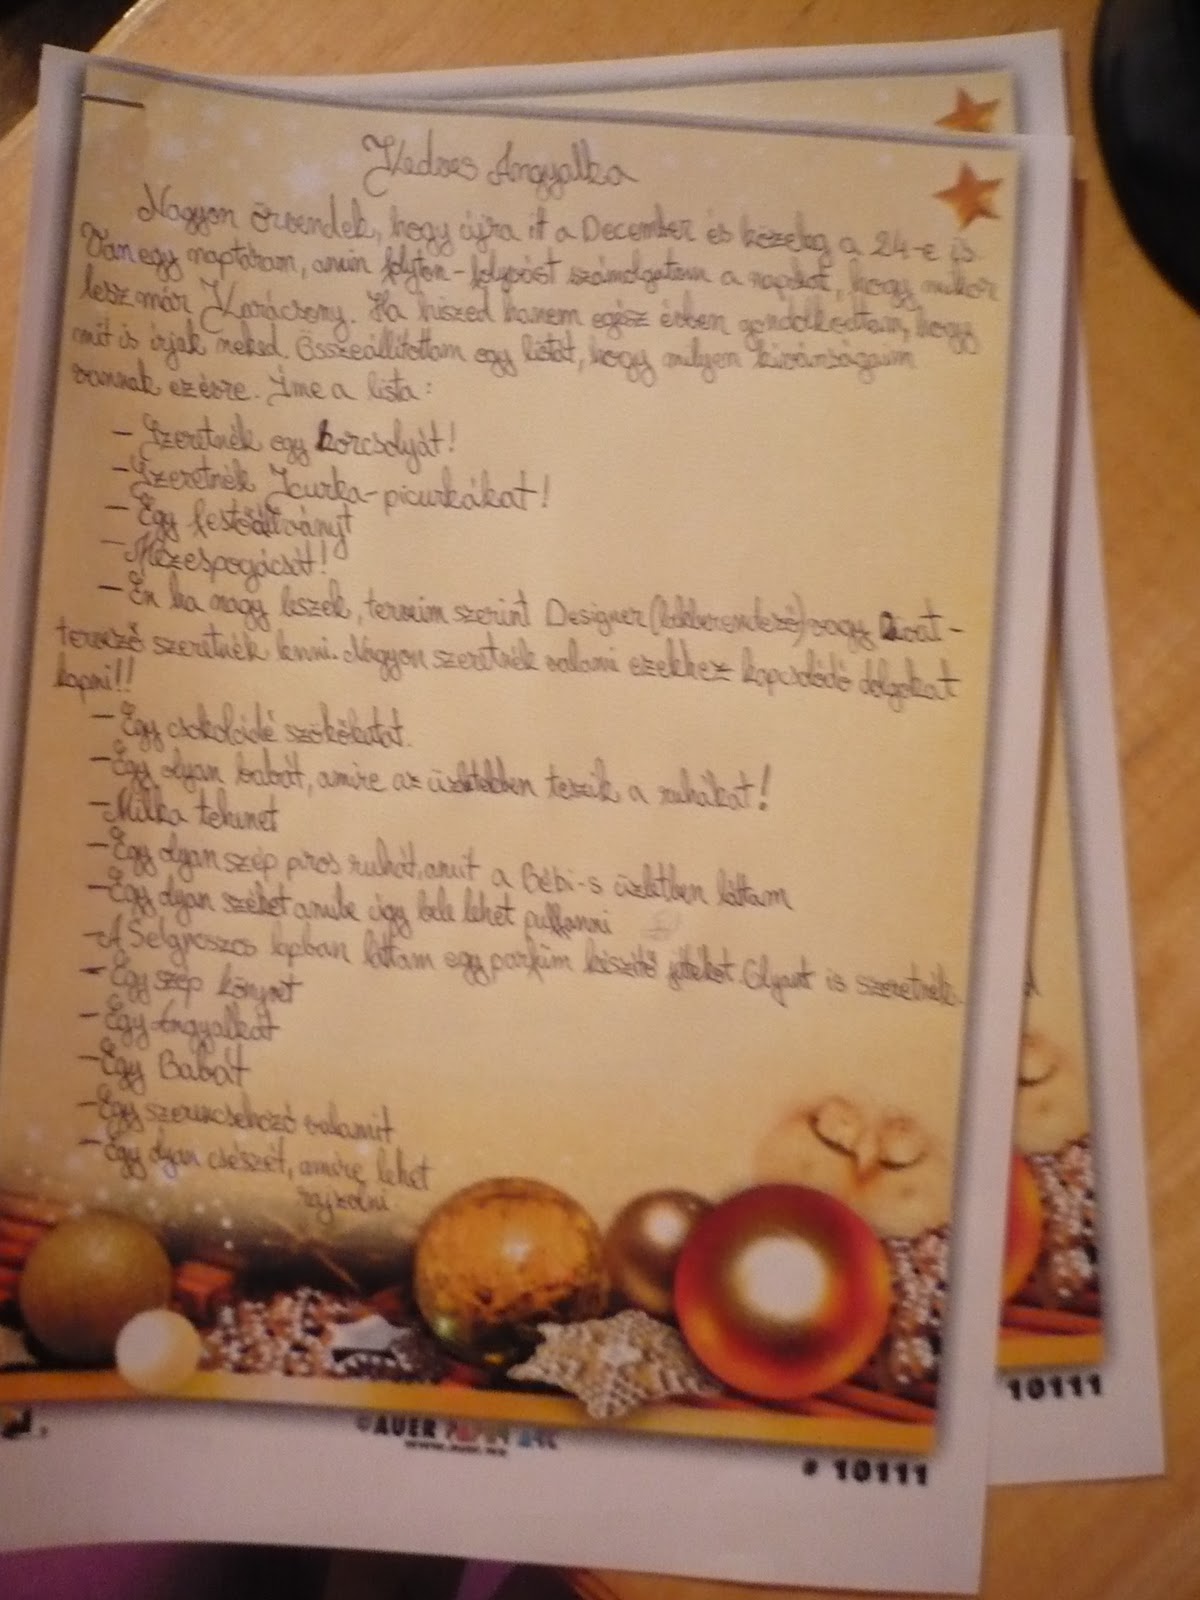 Kedves Angyalka
Nagyon örvendek, hogy újra itt a December és közeleg a 24-e is.
Van egy naptáram, amin folyton-folyvást számolgatom a napokat, hogy mikor
lesz már Karácsony. Ha hiszed hanem egész évben gondolkodtam, hogy
mit is írjak neked. Összeállítottam egy listát, hogy milyen kívánságaim
vannak ezévre. Íme a lista:
- Szeretnék egy korcsolyát!
- Szeretnék Icurka-picurkákat!
- Egy festőállványt
- Mézespogácsát!
- Én ha nagy leszek, terveim szerint Designer (lakberendező) vagy Divat-
tervező szeretnék lenni. Nagyon szeretnék valami ezekhez kapcsolódó dolgokat
kapni!!
- Egy csokoládé szökőkutat.
- Egy olyan babát, amire az üzletekben teszik a ruhákat!
- Milka tehenet
- Egy olyan szép piros ruhát, amit a Bébi-s üzletben láttam
- Egy olyan széket amibe úgy bele lehet puffanni
- A Selgroszos lapban láttam egy parfüm készítő játékot. Olyant is szeretnék.
- Egy szép könyvet
- Egy Angyalkát
- Egy Babát
- Egy szerencsehozó valamit
- Egy olyan csészét, amire lehet
rajzolni
©AUER
# 10111
10111